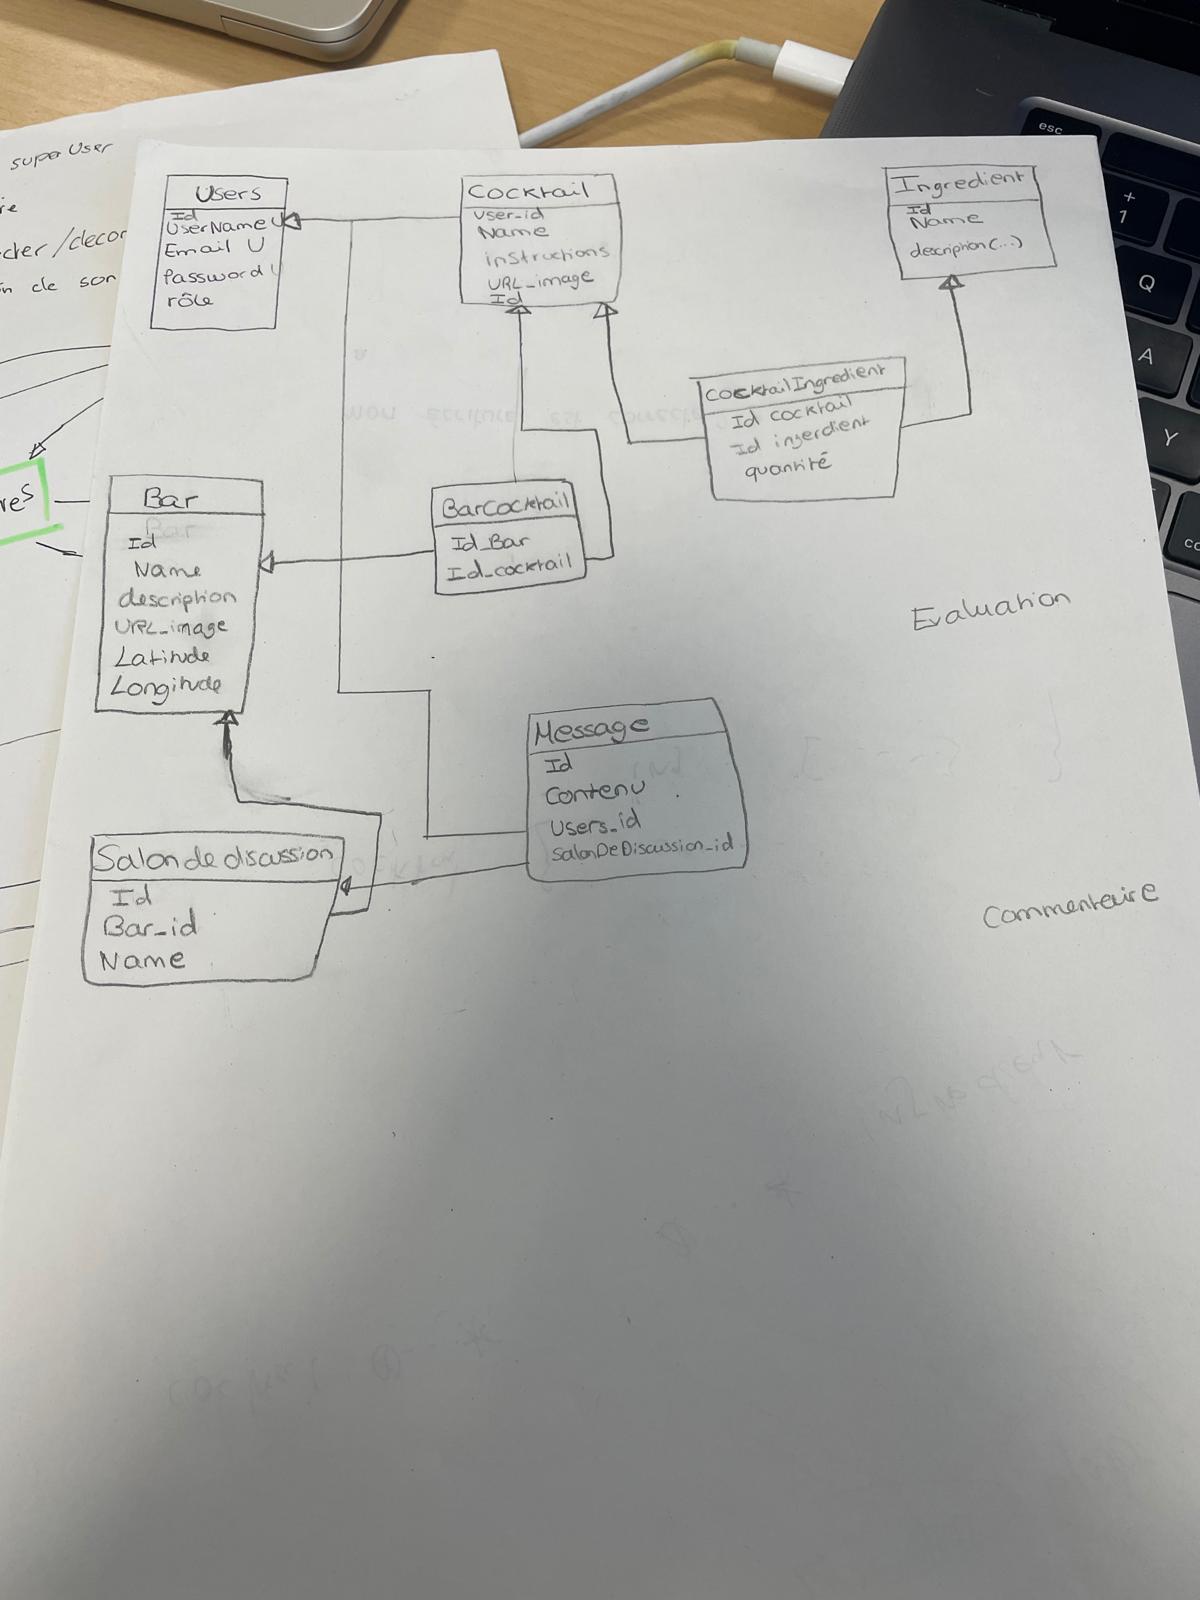 superUser
Users
Id
UserName U
Email U
Password U
rôle
Cocktail
User_id
Name
instructions
URL_image
Id
Ingredient
Id
Name
description(...)
CocktailIngredient
Id cocktail
Id ingerdient
quantité
Bar
Bar
Id
Name
description
URL_image
Latitude
Longitude
BarCocktail
Id_Bar
Id_cocktail
Evaluation
Message
Id
Contenu
Users_id
SalonDeDiscussion_id
Salon de discussion
Id
Bar_id
Name
Commentaire
esc
+
1
Q
A
Y
de son